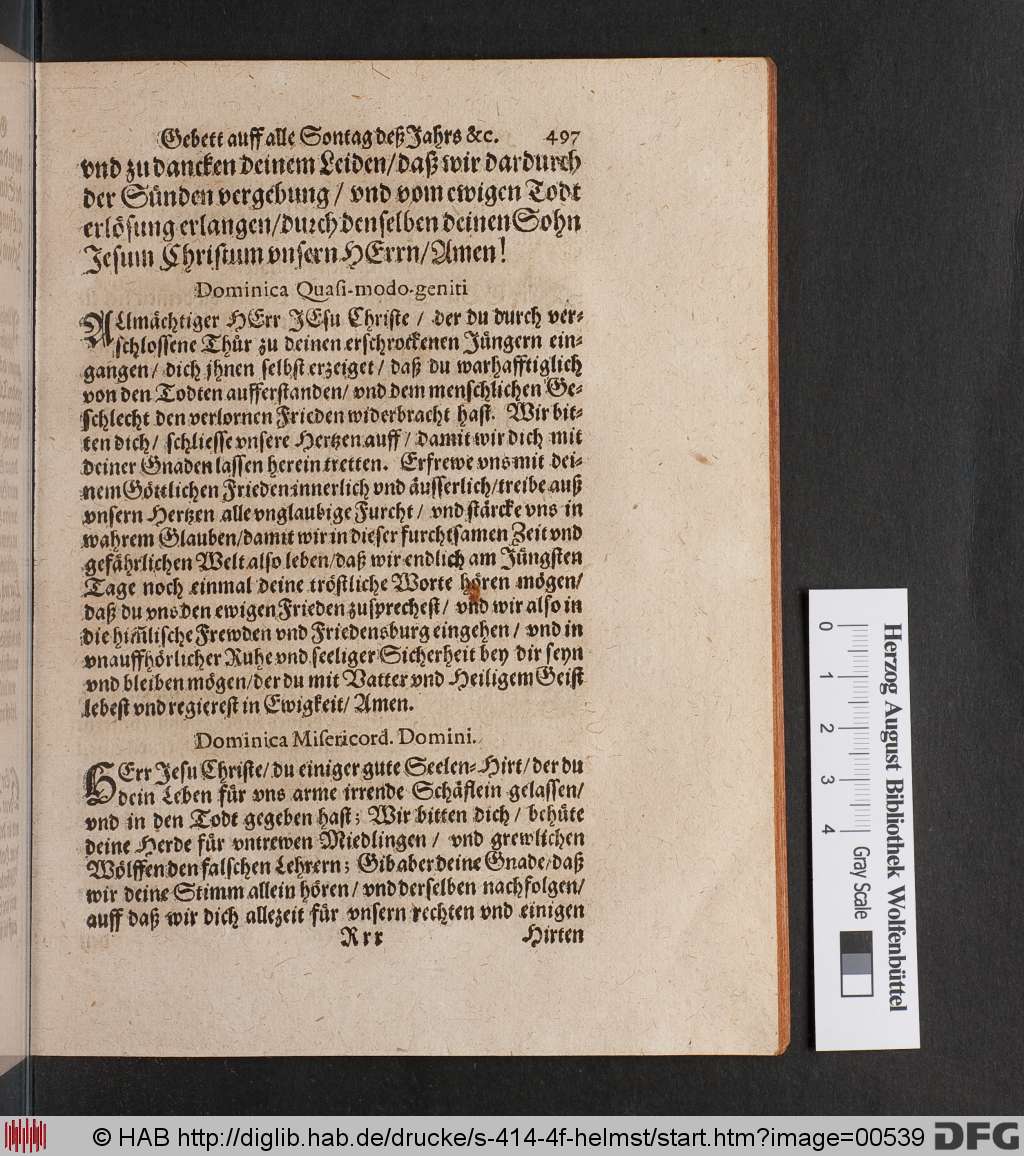 Gebett auff alle Sontag deß Jahrs &c. 497
vnd zu dancken deinem Leiden/daß wir dardurch
der Sünden vergebung / vnd vom ewigen Todt
erlösung erlangen/durch denselben deinen Sohn
Jesum Christum vnsern HErrn/Amen!
Dominica Quasi-modo-geniti
ALlmächtiger HErr JEsu Christe / der du durch ver-
schlossene Thür zu deinen erschrockenen Jüngern ein-
gangen/ dich jhnen selbst erzeiget/ daß du warhafftiglich
von den Todten aufferstanden/ vnd dem menschlichen Ge-
schlecht den verlornen Frieden widerbracht hast. Wir bit-
ten dich/ schliesse vnsere Hertzen auff/ damit wir dich mit
deiner Gnaden lassen herein tretten. Erfrewe vns mit dei-
nem Göttlichen Frieden innerlich vnd äusserlich/treibe auß
vnsern Hertzen alle vnglaubige Furcht/ vnd stärcke vns in
wahrem Glauben/damit wir in dieser furchtsamen Zeit vnd
gefährlichen Welt also leben/daß wir endlich am Jüngsten
Tage noch einmal deine tröstliche Worte hören mögen/
daß du vns den ewigen Frieden zusprechest/ vnd wir also in
die him̃lische Frewden vnd Friedensburg eingehen/ vnd in
vnauffhörlicher Ruhe vnd seeliger Sicherheit bey dir seyn
vnd bleiben mögen/der du mit Vatter vnd Heiligem Geist
lebest vnd regierest in Ewigkeit/ Amen.
Dominica Misericord. Domini.
HErr Jesu Christe/ du einiger gute Seelen-Hirt/der du
dein Leben für vns arme irrende Schäflein gelassen/
vnd in den Todt gegeben hast; Wir bitten dich/ behüte
deine Herde für vntrewen Miedlingen/ vnd grewlichen
Wölffen den falschen Lehrern; Gib aber deine Gnade/daß
wir deine Stimm allein hören/ vnd derselben nachfolgen/
auff daß wir dich allezeit für vnsern rechten vnd einigen
Rrr Hirten
0 1 2 3 4 Gray Scale
Herzog August Bibliothek Wolfenbüttel
© HAB http://diglib.hab.de/drucke/s-414-4f-helmst/start.htm?image=00539 DFG